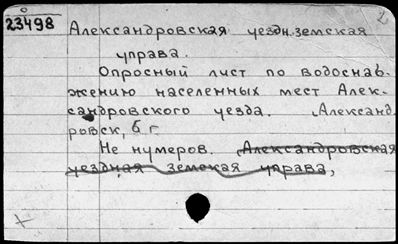 23498
Александровская уездн. земская
управа.
Опросный лист по водоснаб-
жению населенных мест Алек-
сандровского уезда. Александ-
ровск, б. г.
Не нумеров. Александровская
уездная земская управа,